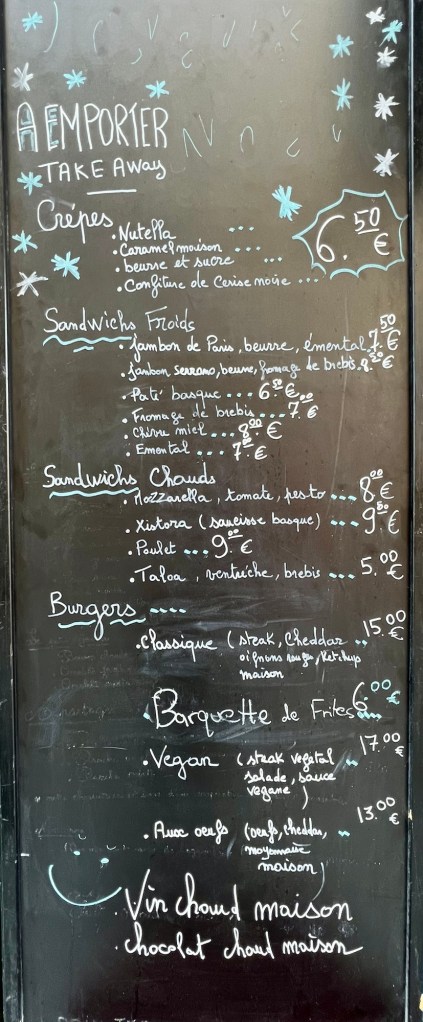 A EMPORTER
TAKE AWAY
Crêpes
• Nutella ...
• Caramel maison ...
• beurre et sucre ...
• Confiture de Cerise noire ...
6.50 €
Sandwichs Froids
• jambon de Paris, beurre, émental 7.50 €
• jambon serrano, beurre, fromage de brebis 8.50 €
• Paté basque ... 6.50 €
• Fromage de brebis ... 7.00 €
• Chèvre miel ... 8.00 €
• Emental ... 7.00 €
Sandwichs Chauds
• Mozzarella, tomate, pesto ... 8.00 €
• Xistora (saucisse basque) ... 9.50 €
• Poulet ... 9.50 €
• Taloa, ventrèche, brebis ... 5.00 €
Burgers ....
• Classique (steak, Cheddar .. 15.00 €
oignons rouges, Ketchup
maison
• Barquette de Frites ... 6.00 €
• Vegan (steak végétal .. 17.00 €
salade, sauce
vegane)
• Aux oeufs (oeufs, cheddar, .. 13.00 €
mayonnaise
maison)
• Vin chaud maison
• chocolat chaud maison